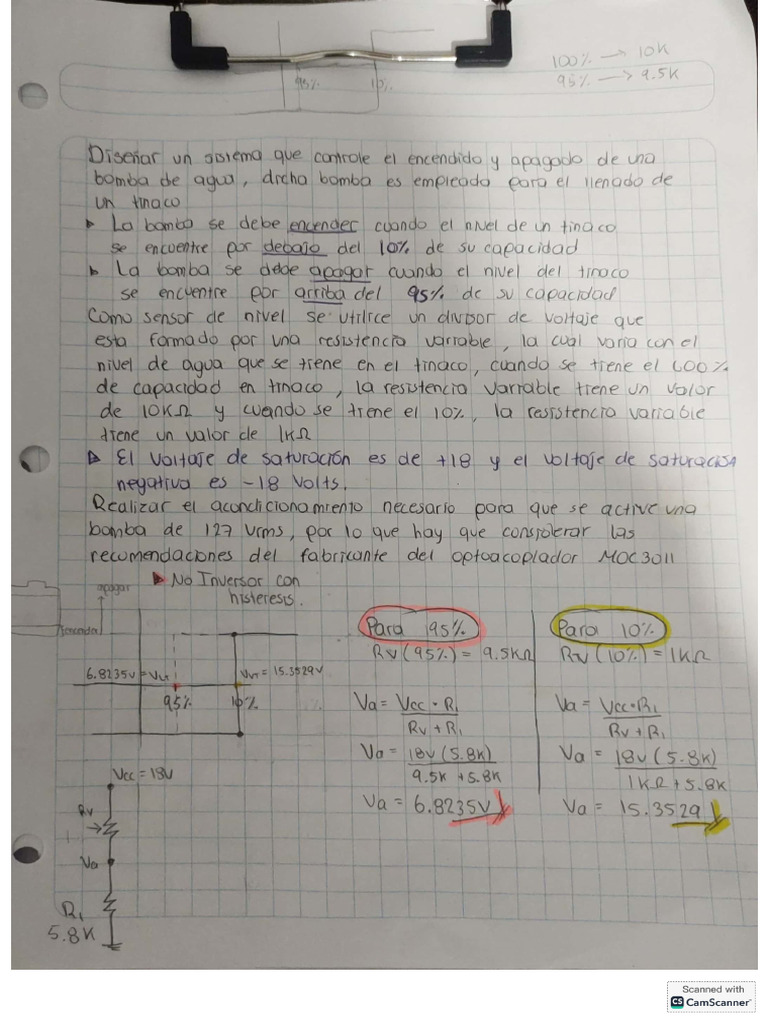 100% → 10K
95% → 9.5K
95% 10%
Diseñar un sistema que controle el encendido y apagado de una
bomba de agua, dicha bomba es empleado para el llenado de
un tinaco
La bomba se debe encender cuando el nivel de un tinaco
se encuentre por debajo del 10% de su capacidad
La bomba se debe apagar cuando el nivel del tinaco
se encuentre por arriba del 95% de su capacidad
Como sensor de nivel se utilice un divisor de voltaje que
esta formado por una resistencia variable, la cual varia con el
nivel de agua que se tiene en el tinaco, cuando se tiene el 100%
de capacidad en tinaco, la resistencia variable tiene un valor
de 10KΩ y cuando se tiene el 10%, la resistencia variable
tiene un valor de 1KΩ
El voltaje de saturación es de +18 y el voltaje de saturación
negativa es -18 Volts.
Realizar el acondicionamiento necesario para que se active una
bomba de 127 Vrms, por lo que hay que considerar las
recomendaciones del fabricante del optoacoplador MOC3011
No Inversor con
histeresis.
apagar
encender
6.8235V = VLT
VUT = 15.3529V
95% 10%
Para 95%
Rv (95%) = 9.5KΩ
Va = Vcc · R1
Rv + R1
Va = 18V (5.8K)
9.5K + 5.8K
Va = 6.8235V
Para 10%
Rv (10%) = 1KΩ
Va = Vcc · R1
Rv + R1
Va = 18V (5.8K)
1KΩ + 5.8K
Va = 15.3529
Vcc = 18V
Rv
Va
R1
5.8K
Scanned with
CS CamScanner